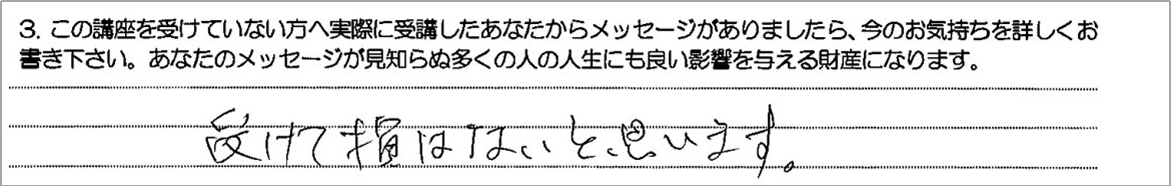 3. この講座を受けていない方へ実際に受講したあなたからメッセージがありましたら、今のお気持ちを詳しくお
書き下さい。あなたのメッセージが見知らぬ多くの人の人生にも良い影響を与える財産になります。
受けて損はないと思います。